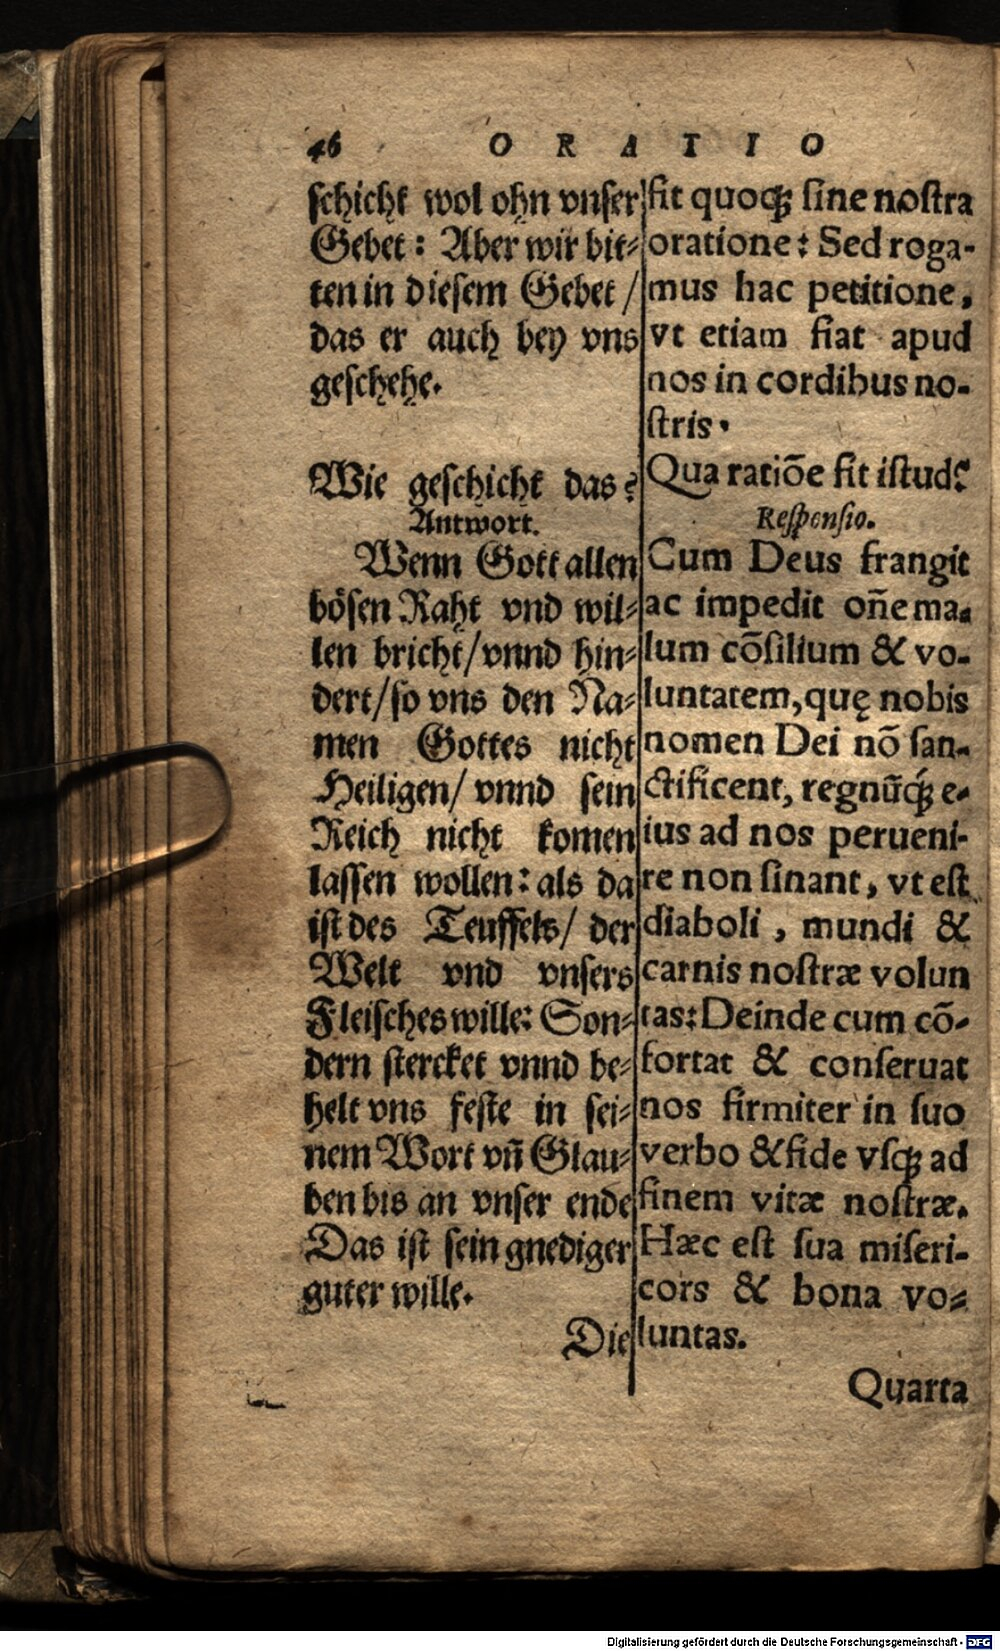 46 ORATIO
schicht wol ohn vnser
Gebet: Aber wir bit⸗
ten in diesem Gebet /
das er auch bey vns
geschehe.
Wie geschicht das?
Antwort.
Wenn Gott allen
bösen Raht vnd wil⸗
len bricht/vnnd hin⸗
dert/so vns den Na⸗
men Gottes nicht
Heiligen/ vnnd sein
Reich nicht komen
lassen wollen: als da
ist des Teuffels/ der
Welt vnd vnsers
Fleisches wille: Son⸗
dern stercket vnnd be⸗
helt vns feste in sei⸗
nem Wort vn̄ Glau⸗
ben bis an vnser ende
Das ist sein gnediger
guter wille.
Die
fit quoq; sine nostra
oratione: Sed roga-
mus hac petitione,
vt etiam fiat apud
nos in cordibus no-
stris.
Qua ratiōe fit istud?
Responsio.
Cum Deus frangit
ac impedit oñe ma-
lum cōsilium & vo-
luntatem, quę nobis
nomen Dei nō san-
ctificent, regnūq́; e-
ius ad nos perueni-
re non sinant, vt est
diaboli, mundi &
carnis nostræ volun
tas: Deinde cum cō-
fortat & conseruat
nos firmiter in suo
verbo & fide vsq; ad
finem vitæ nostræ.
Hæc est sua miseri-
cors & bona vo⸗
luntas.
Quarta
Digitalisierung gefördert durch die Deutsche Forschungsgemeinschaft - DFG